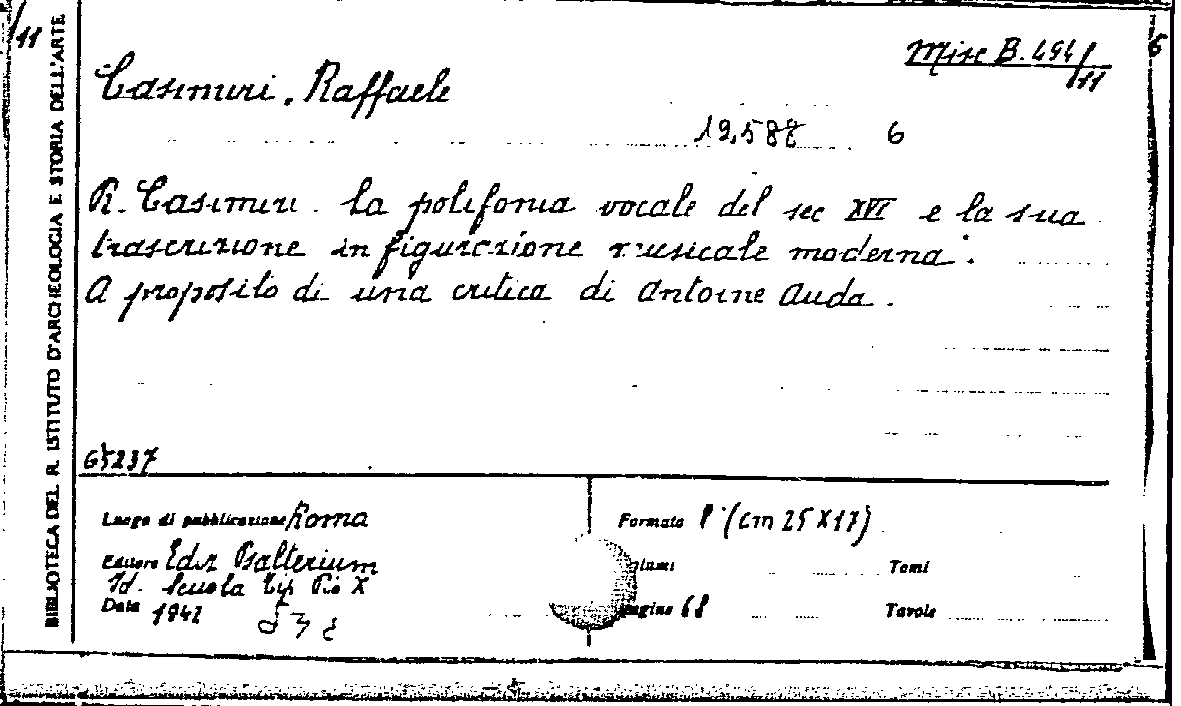 /11
BIBLIOTECA DEL R. ISTITUTO D'ARCHEOLOGIA E STORIA DELL'ARTE
Misc B. 494/11
6
Casimiri, Raffaele
19,588 6
R. Casimiri. La polifonia vocale del sec XVI e la sua
trascrizione in figurazione musicale moderna.
A proposito di una critica di Antoine Auda.
65237
Luogo di pubblicazione Roma
Formato 8° (cm 25 X 17)
Editore Ediz Psalterium
Volumi Tomi
Id. Scuola Tip Pio X
Data 1942
Pagine 68 Tavole